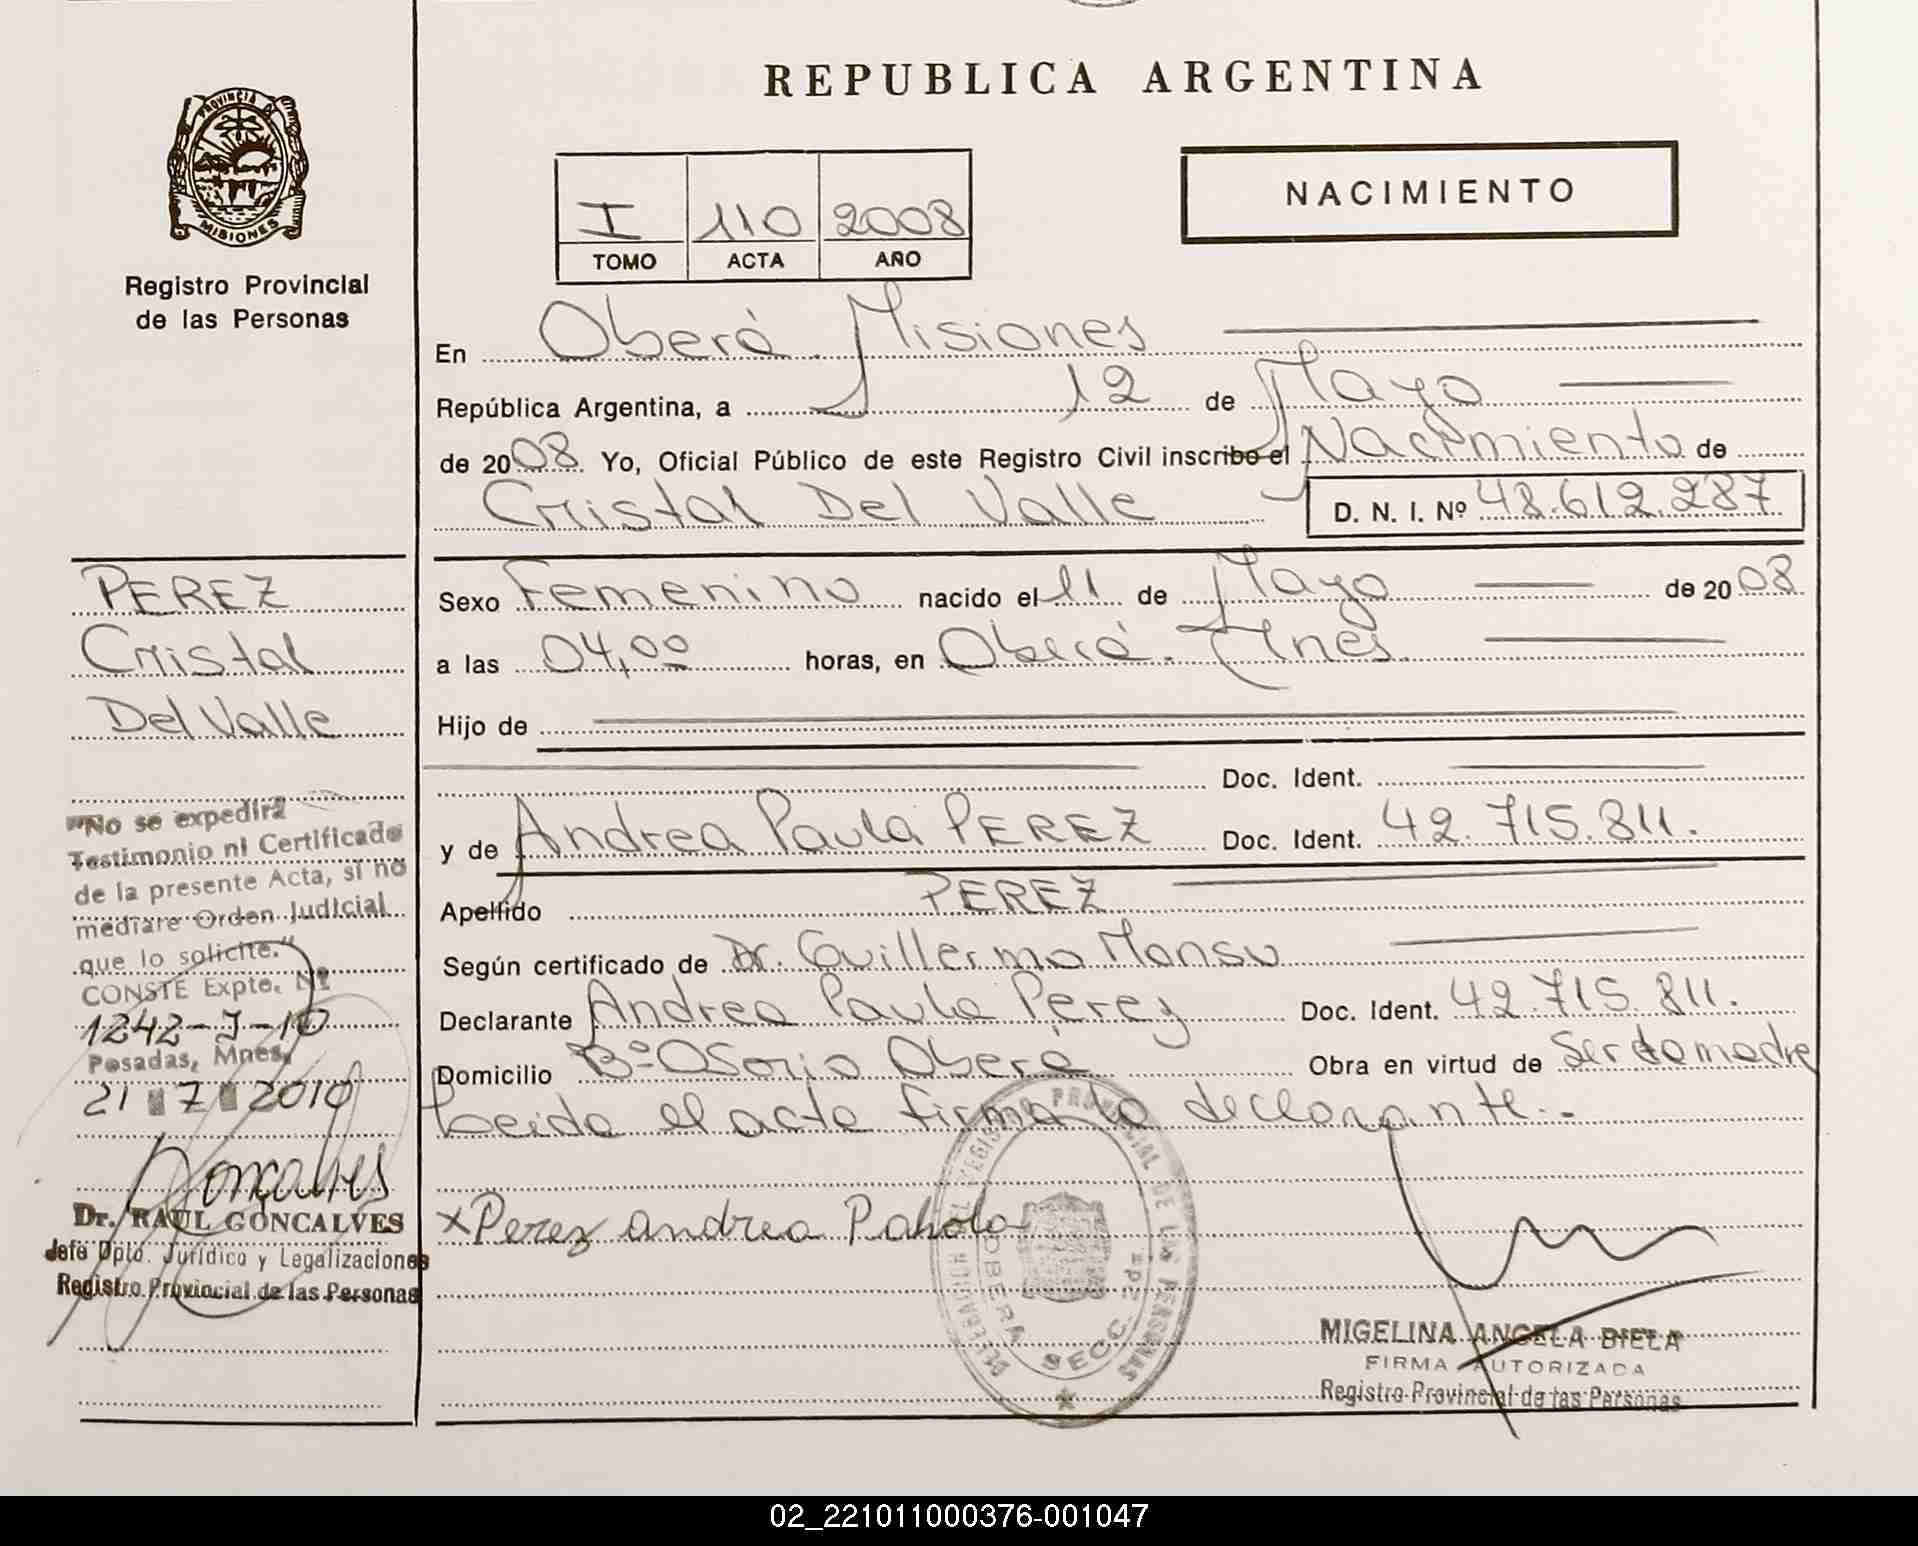 REPUBLICA ARGENTINA
PROVINCIA DE
MISIONES
Registro Provincial
de las Personas
I 110 2008
TOMO ACTA AÑO
NACIMIENTO
En Oberá Misiones
República Argentina, a 12 de Mayo
de 2008 Yo, Oficial Público de este Registro Civil inscribo el Nacimiento de
Cristal Del Valle D. N. I. Nº 48.612.287
PEREZ
Cristal
Del Valle
"No se expedirá
Testimonio ni Certificado
de la presente Acta, si no
mediare Orden Judicial
que lo solicite."
CONSTE Expte. Nº
1242-J-10
Posadas, Mnes,
21 7 2010
Goncalves
Dr. RAUL GONCALVES
Jefe Dpto. Jurídico y Legalizaciones
Registro Provincial de las Personas
Sexo Femenino nacido el 11 de Mayo de 2008
a las 04,00 horas, en Oberá. Mnes.
Hijo de
Doc. Ident.
y de Andrea Paula PEREZ Doc. Ident. 42.715.811.
Apellido PEREZ
Según certificado de Dr. Guillermo
Declarante Andrea Paula Perez Doc. Ident. 42.715.811.
Domicilio Bº Osorio Oberá Obra en virtud de Ser la madre
Leida el acta firma la declarante.-
x Perez andrea Pahola
DELEGACION DEL REGISTRO PROVINCIAL DE LAS PERSONAS
OBERA SECC. 2da
MIGELINA ANGELA BIELA
FIRMA AUTORIZADA
Registro Provincial de las Personas
02_221011000376-001047